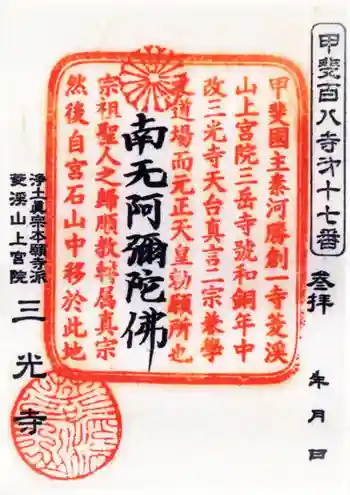 甲斐百八寺第十七番
参拝
年月日
甲斐國主秦河勝創一寺菱溪
山上宮院三岳寺號和銅年中
改三光寺天台真言二宗兼學
之道場而元正天皇勅願所也
宗祖聖人之歸順教轉属真宗
然後自宮石山中移於此地
南无阿彌陀佛
浄土真宗本願寺派
菱渓山上宮院
三光寺